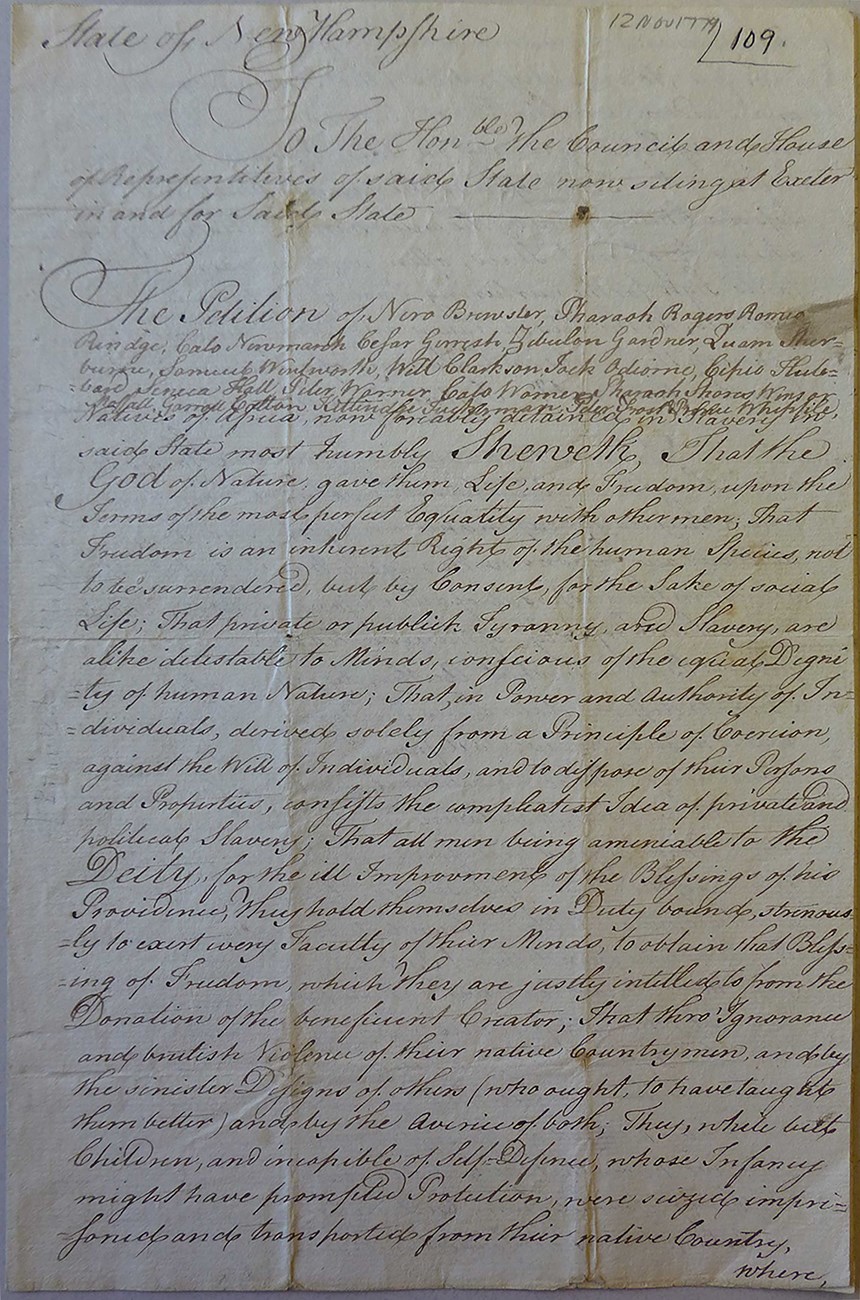 State of New Hampshire
12 NOV 1779
109.
To The Honble The Council and House
of Represintitives of said State now siting at Exeter
in and for Said State
The Petition of Nero Brewster, Pharaoh Rogers Romeo
Rindge, Cato Newmarch Cesar Gerrish Zebulon Gardner, Quam Sher=
burne, Samuel Wentworth, Will Clarkson Jack Odiorne, Cipio Hub=
=bard, Seneca Hall, Peter Warner, Cato Warner, Pharaoh Shores Winsor
Moffatt Garrott Cotton Kittindge Tuckerman Peter Frost Prince Whipple,
Natives of Africa, now forcibly detained in Slavery in
said State most humbly Sheweth, That the
God of Nature, gave them, Life, and Freedom, upon the
Terms of the most perfect Equality with other men; That
Freedom is an inherent Right of the human Species, not
to be surrendered, but by Consent, for the Sake of social
Life; That private or publick Tyranny, and Slavery, are
alike detestable to Minds, conscious of the equal Digni
=ty of human Nature; That, in Power and Authority of In=
=dividuals, derived solely from a Principle of Coercion,
against the Will of Individuals, and to dispose of their Persons
and Properties, consists the compleatest Idea of private and
political Slavery; That all men being ameniable to the
Deity, for the ill Improvment of the Blessings of his
Providence, They hold themselves in Duty bound, strenous
=ly to exert every Faculty of their Minds, to obtain that Bless=
=ing of Freedom, which They are justly intitled to from the
Donation of the beneficent Creator; That thro' Ignorance
and brutish Violence of their native Countrymen, and by
the sinister Designs of others (who ought, to have taught
them better) and by the Avarice of both; They, while but
Children, and incapible of Self-Defence, whose Infancy
might have prompted Protection, were seized impri=
=soned and transported from their native Country,
where,